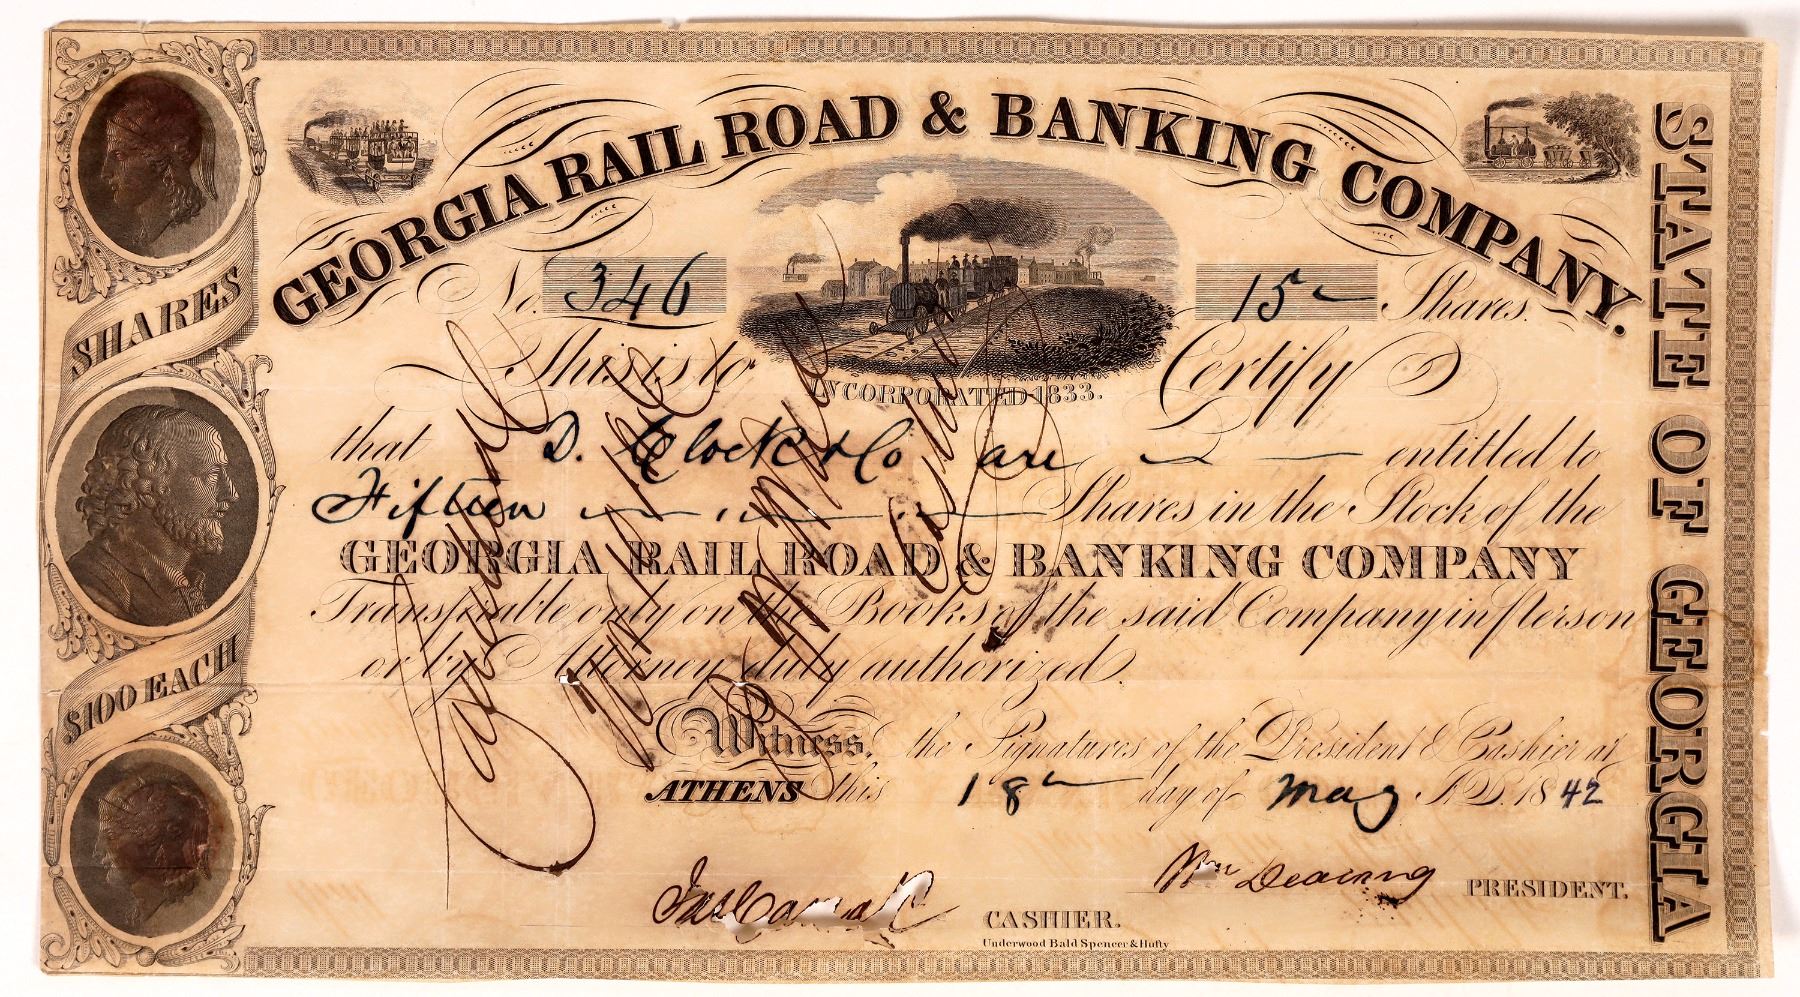 SHARES
$100 EACH
GEORGIA RAIL ROAD & BANKING COMPANY.
No. 346
15 Shares.
INCORPORATED 1833.
This is to Certify
that D. Clock & Co are entitled to
Fifteen Shares in the Stock of the
GEORGIA RAIL ROAD & BANKING COMPANY
Transferable only on the Books of the said Company in person
or by Attorney duly authorized.
Witness, the Signatures of the President & Cashier at
ATHENS this 18 day of May A.D. 1842
Wm Dearing PRESIDENT.
Jas Camak CASHIER.
Underwood Bald Spencer & Hufty
STATE OF GEORGIA
Cashr